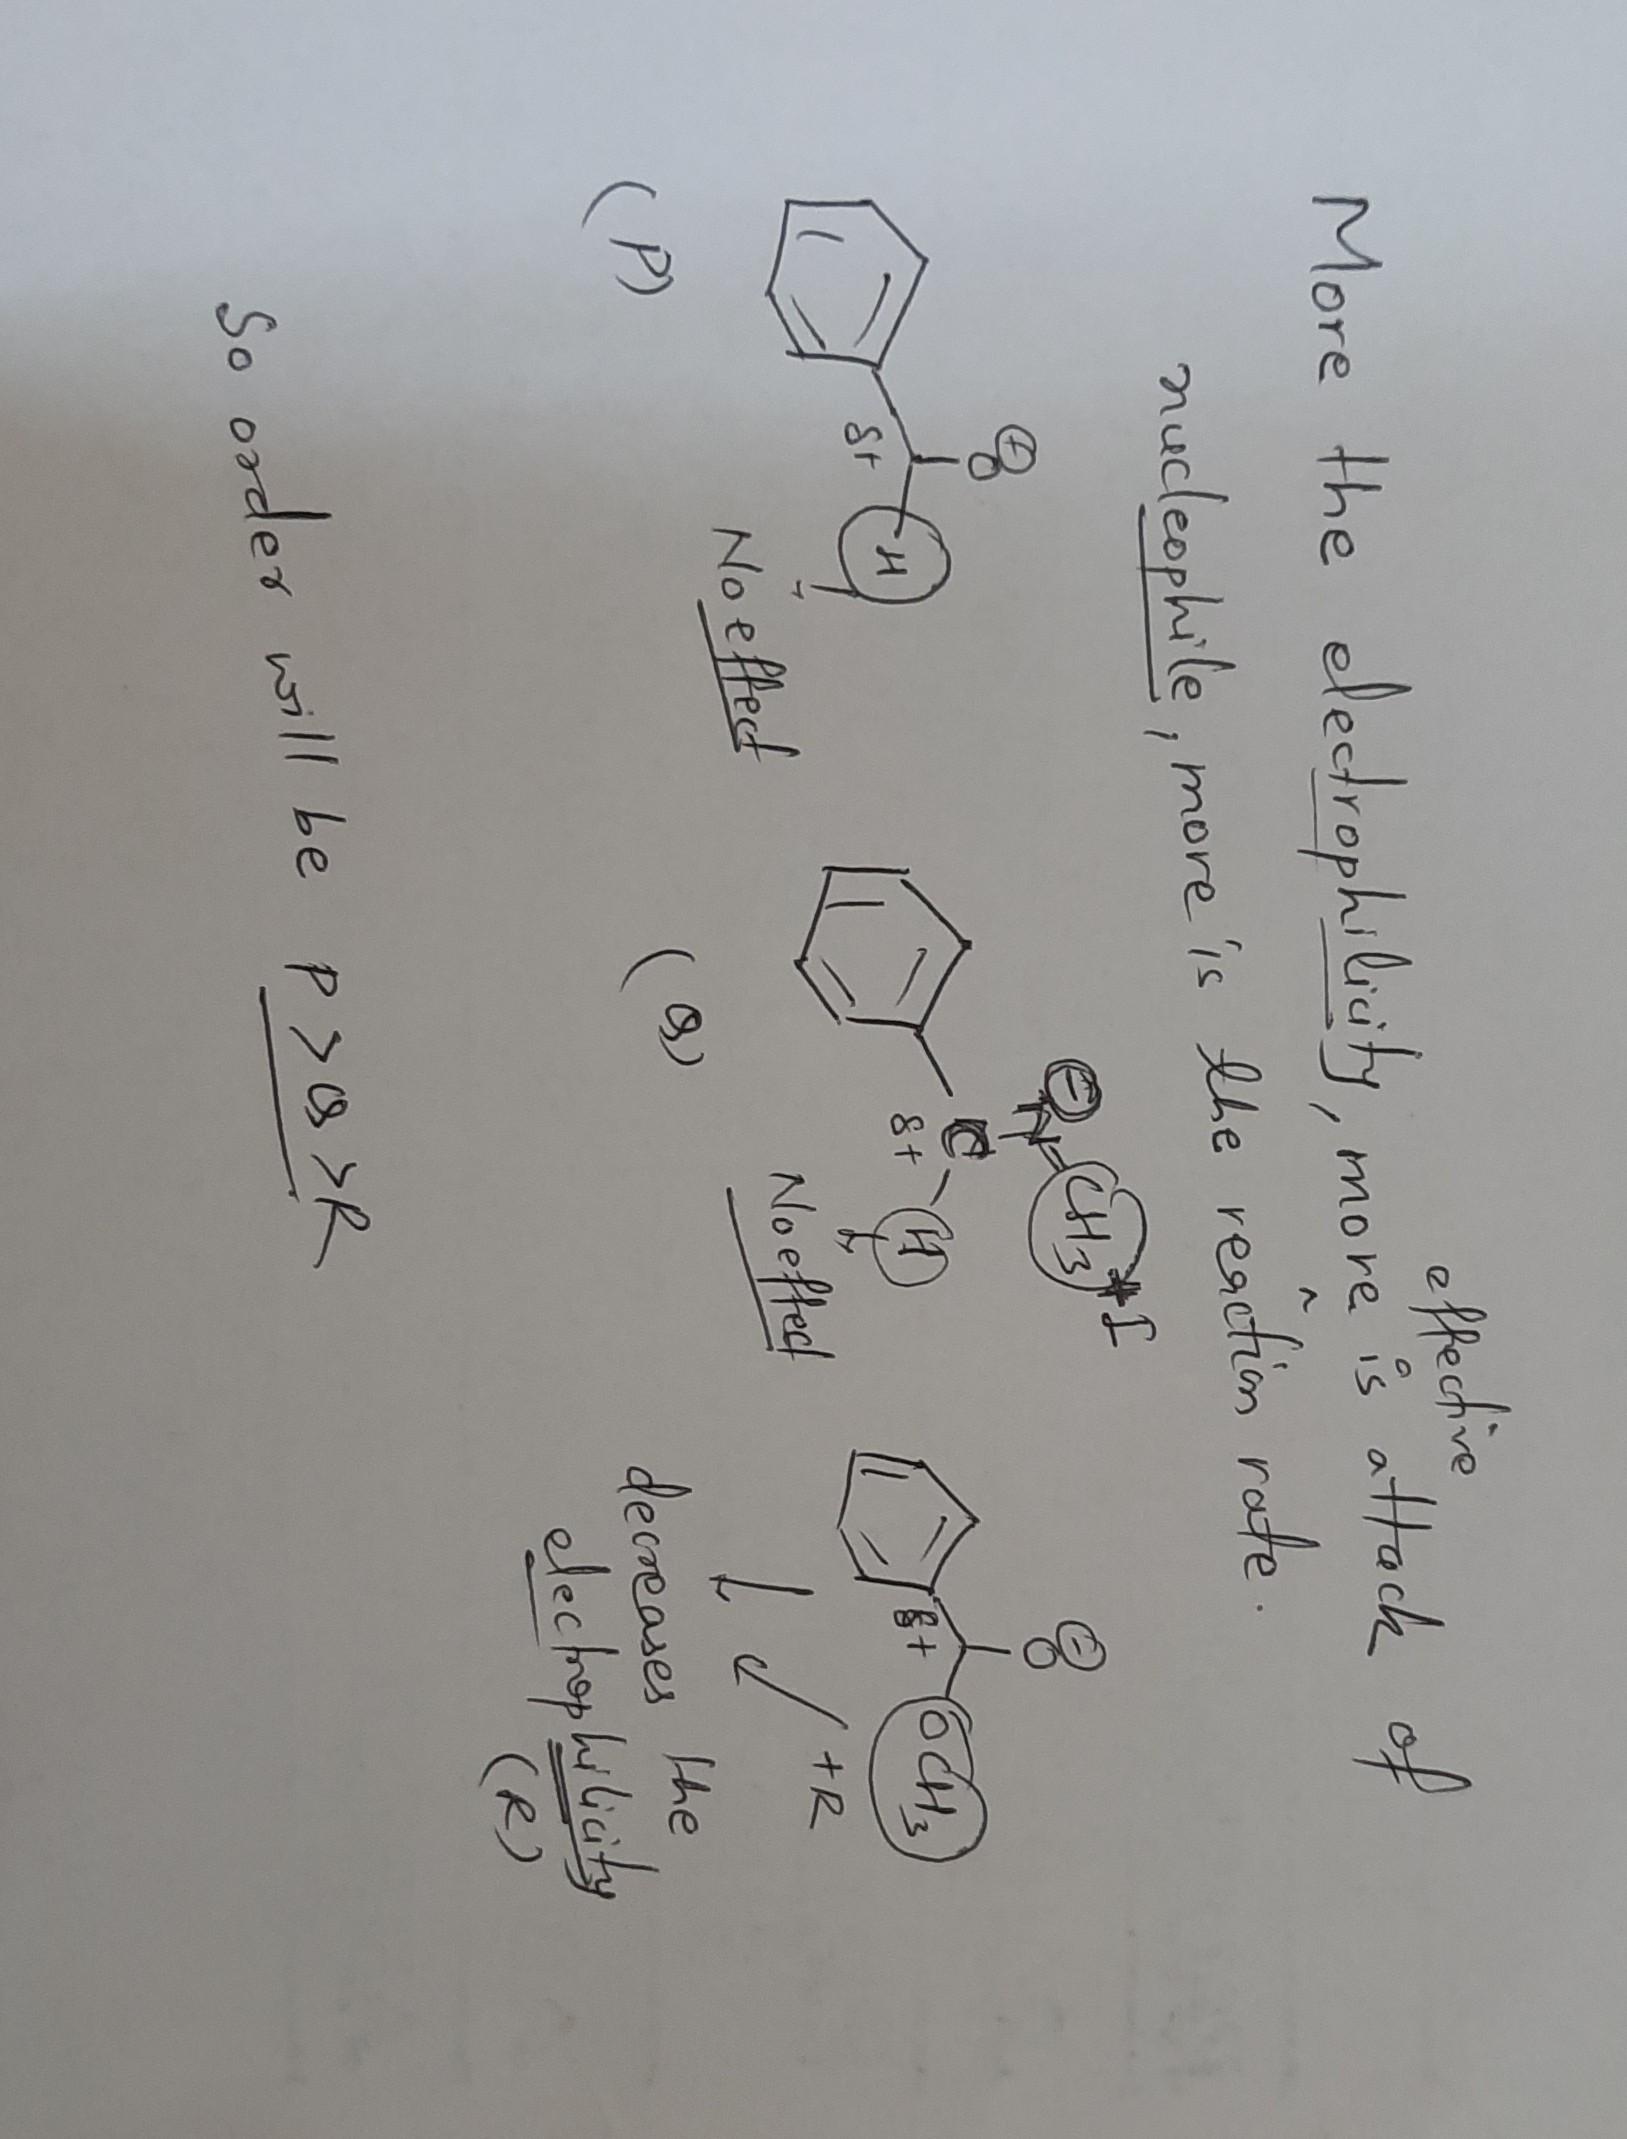 effective
More the electrophilicity, more is attack of
nucleophile, more is the reaction rate.
⊕
O
δ+
H
No effect
(P)
⊖
N
CH3
+I
C
δ+
H
No effect
(Q)
⊖
O
δ+
OCH3
+R
decreases the
electrophilicity
(R)
So order will be P > Q > R